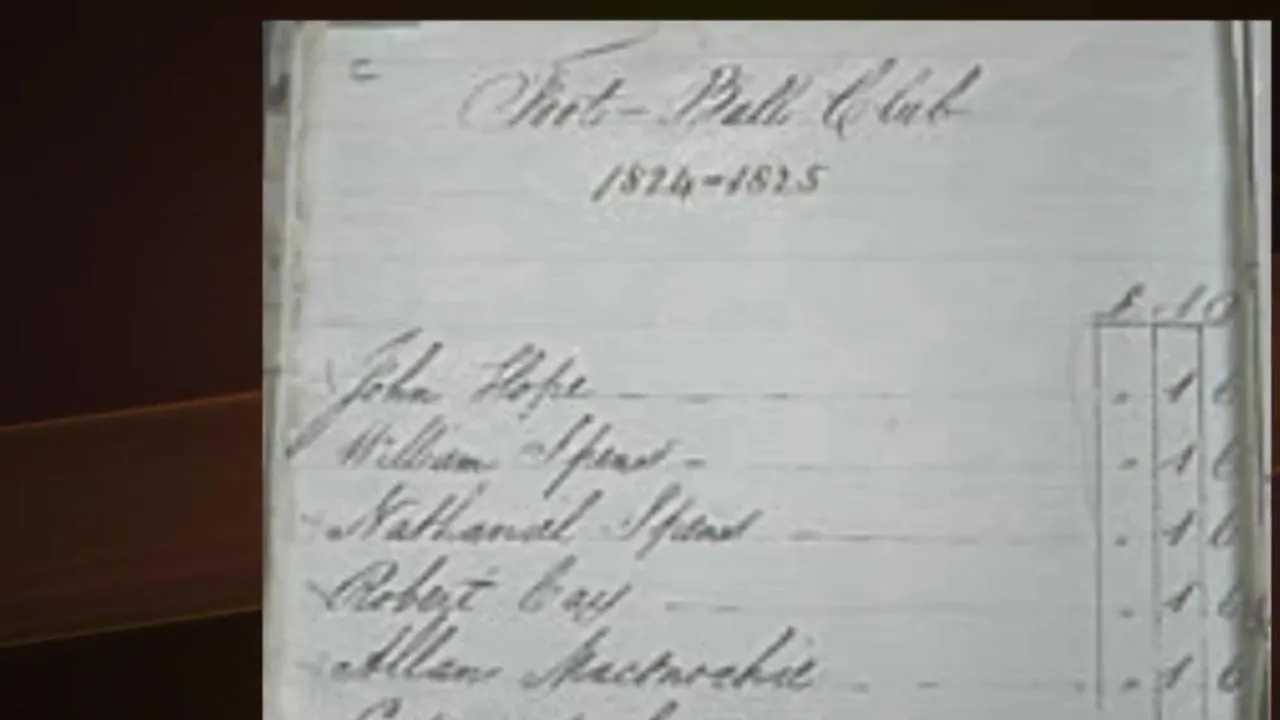 Foot-Ball Club
1824=1825
John Hope
William Spens -
Nathaniel Spens
Robert Cay
Allan Maconochie